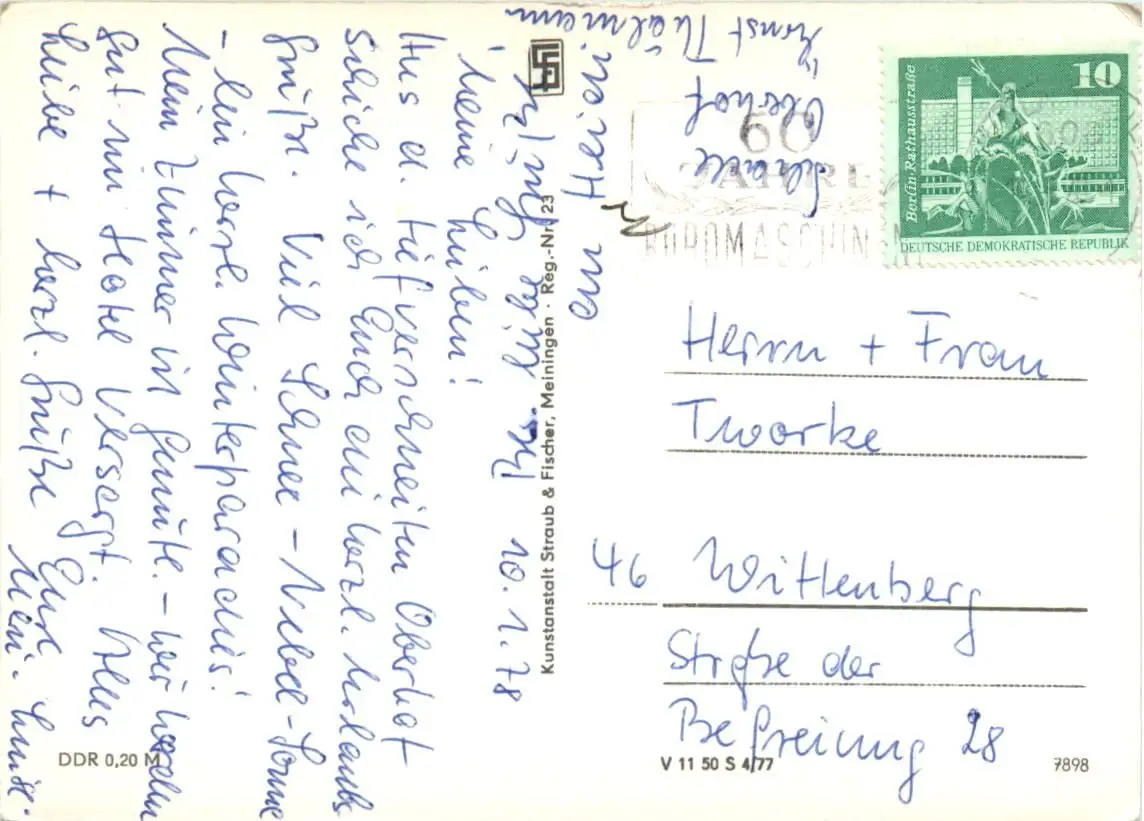 10. 1. 78
Meine Lieben!
Aus d. tiefverschneiten Oberhof
schicke ich Euch ein herzl. Urlaubs
Grüße. Viel Schnee - Nebel - Sonne
- ein herzl. Winterparadies!
Mein Zimmer ist Gemüte. - wir werden
gut im Hotel versorgt. Alles
Liebe + herzl. Grüße Eure
Ernst Thälmann
Oberhof
Kunstanstalt Straub & Fischer, Meiningen · Reg.-Nr. 23
DDR 0,20 M
60
JAHRE
BÜROMASCHINEN
10
Berlin-Rathausstraße
DEUTSCHE DEMOKRATISCHE REPUBLIK
Herrn + Frau
Tworke
46 Wittenberg
Straße der
Befreiung 28
V 11 50 S 4/77
7898